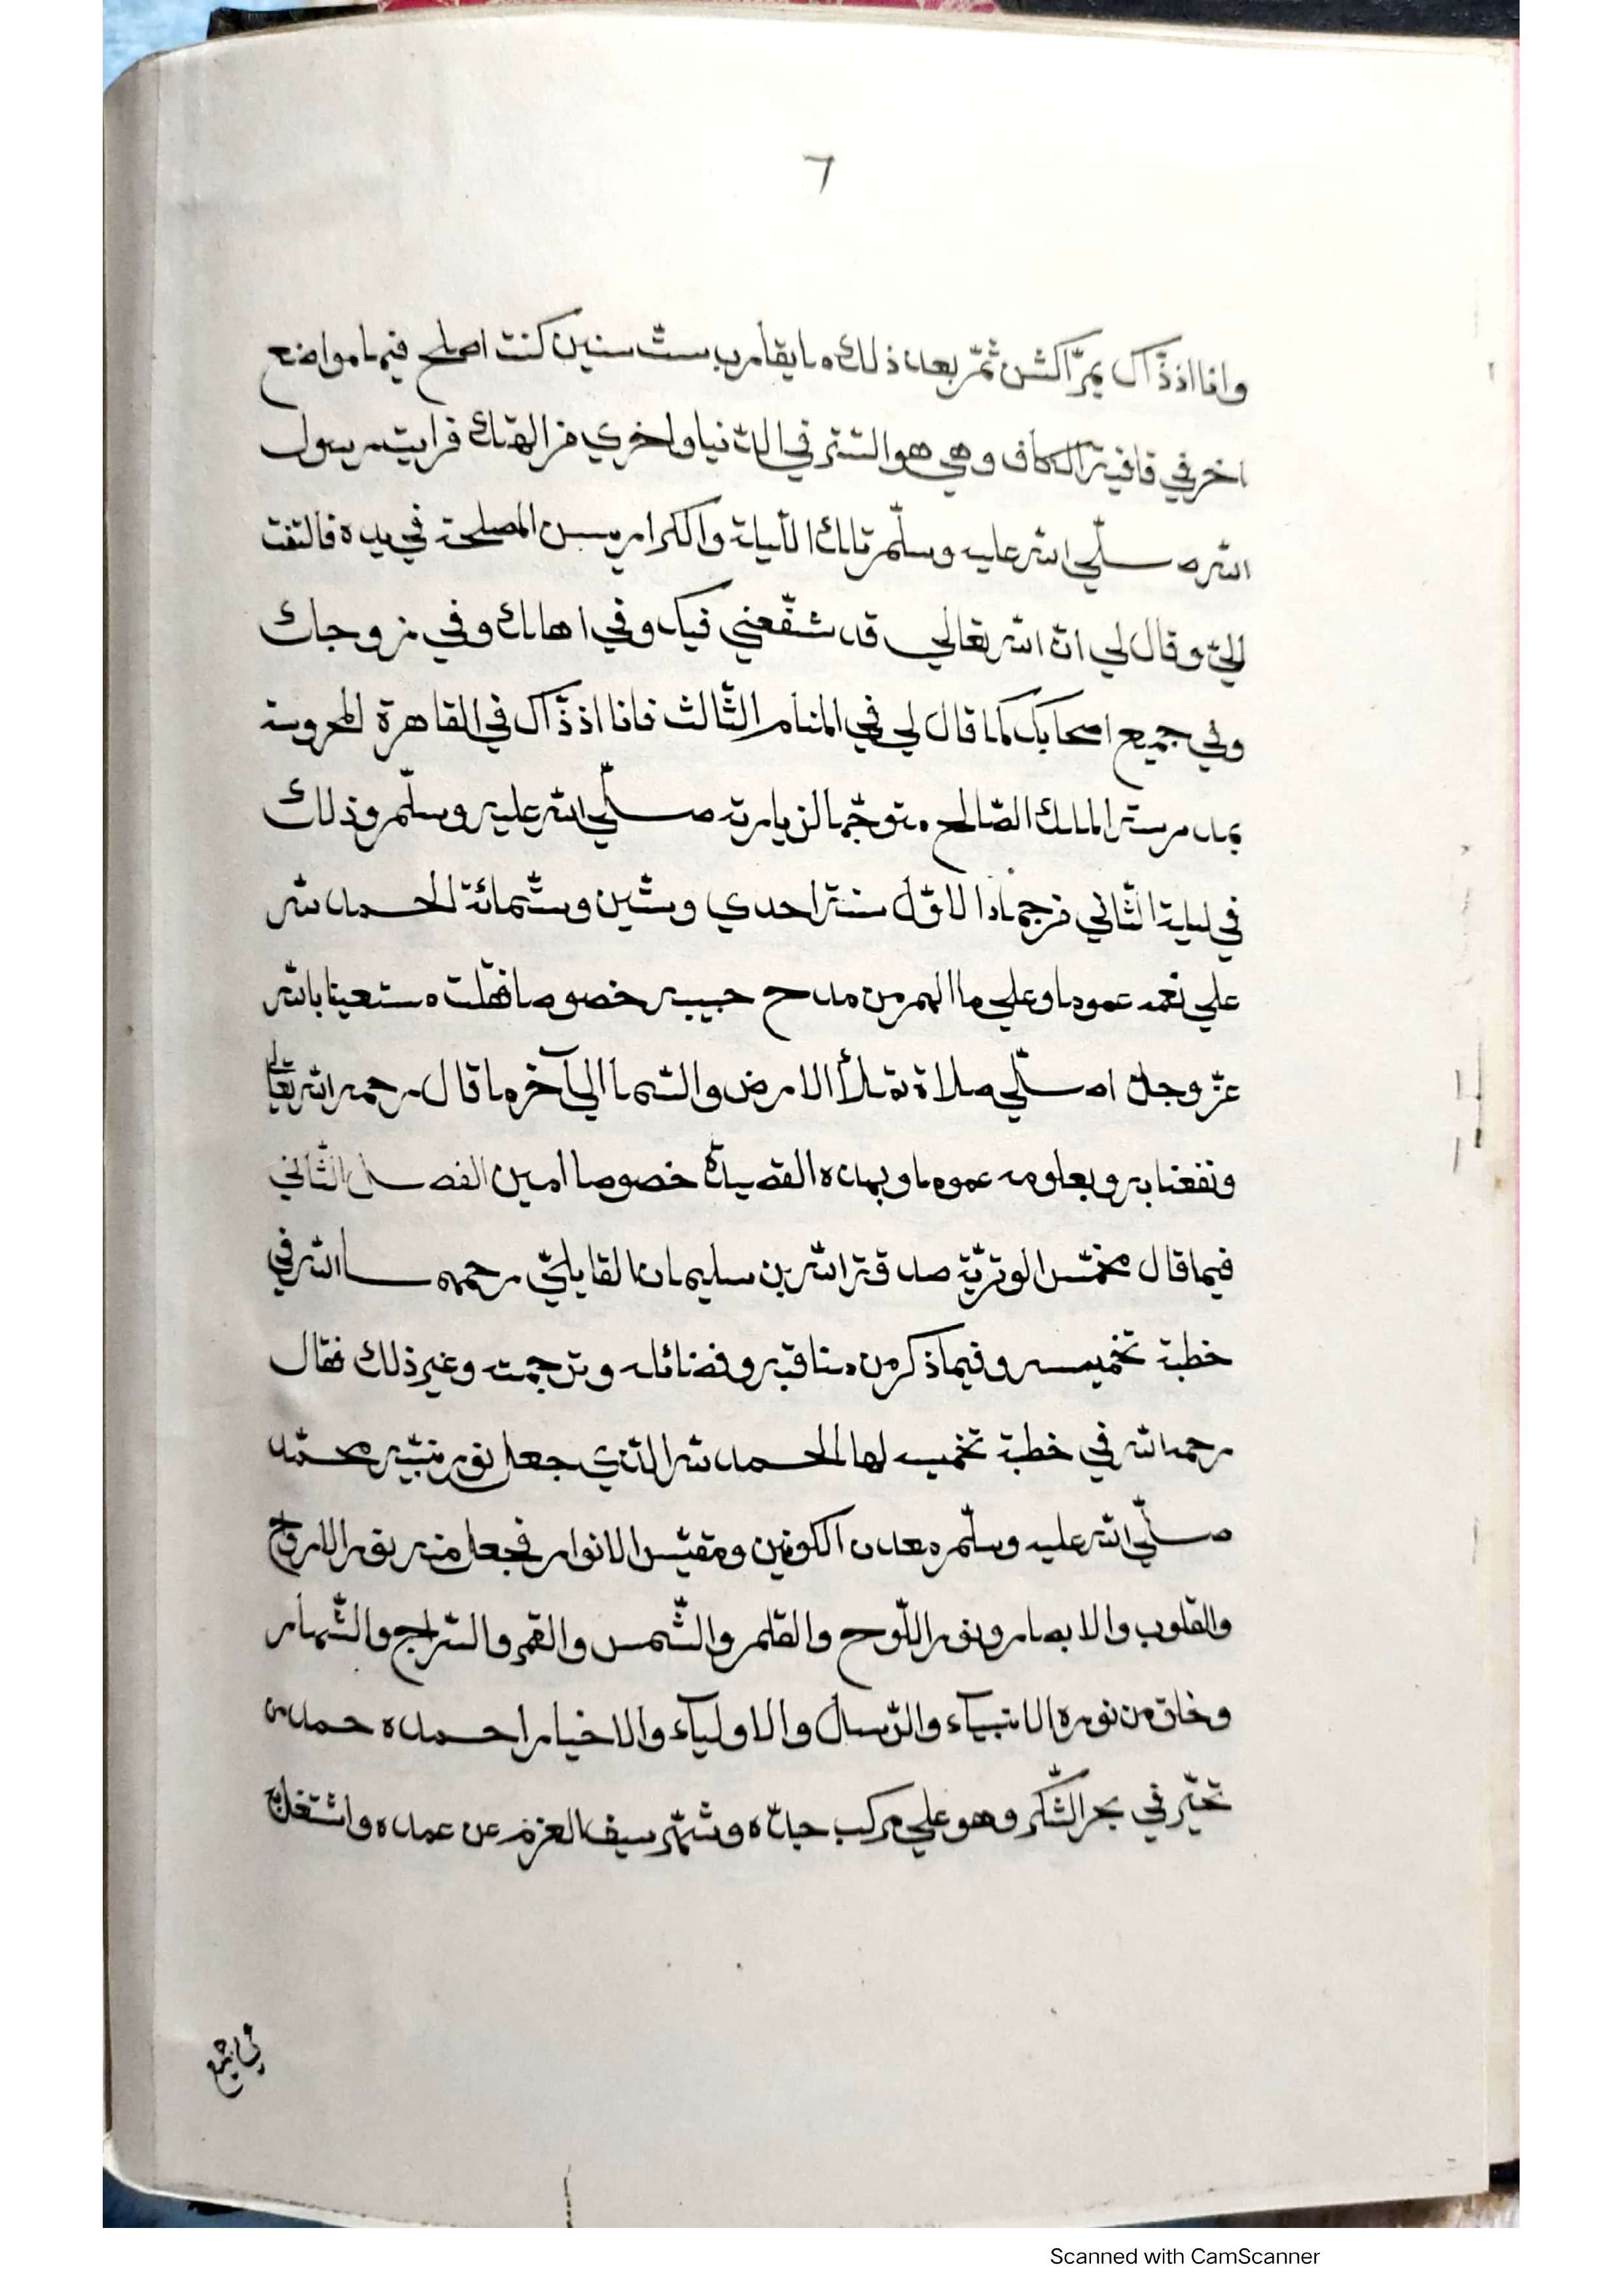 ٦
وانا اذ ذّاك بمرّاكش ثمّ بعد ذلك ما يقارب ستّ سنين كنت اصلح فيها مواضع
اخر في قافية الكاف وهي هو الستر في الدّنيا واخري من الهتك فرايت رسول
الله صلّي الله عليه وسلّم تلك اللّيلة والكراريس المصلحة في يده فالتفت
اليّ وقال لي انّ الله تعالي قد شفّعني فيك وفي اهلك وفي زوجك
وفي جميع اصحابك كما قال لي في المنام الثّالث فانا اذ ذّاك في القاهرة المحروسة
بمدرسة الملك الصّالح متوجّها لزيارته صلّي الله عليه وسلّم وذلك
في ليلة الثّاني من جمادا الاوّل سنة احدي وستّين وستّمائة الحمد لله
علي نعمه عموما وعلي ما الهم من مدح حبيبه خصوصا فقلت مستعينا بالله
عزّ وجلّ اصلّي صلاة تملأ الارض والسّما الي آخر ما قال رحمه الله تعالي
ونفعنا به وبعلومه عموما وبهذه القصيدة خصوصا امين الفصل الثّاني
فيما قال مخمّس الوتريّة صدقة الله بن سليمان القايليّ رحمهما الله في
خطبة تخميسه وفيما ذكر من مناقبه وفضائله وترجمته وغير ذلك فقال
رحمه الله في خطبة تخميسه لها الحمد لله الّذي جعل نور نبيّه محمّد
صلّي الله عليه وسلّم معدن الكونين ومقبّس الانوار فجعل منه نور الارواح
والقلوب والابصار ونور اللّوح والقلم والشّمس والقمر والسّراج والنّهار
وخلق من نوره الانبيآء والرّسل والاوليآء والاخيار احمده حمد من
تحيّر في بحر الشّكر وهو علي مركب حياته وشمّر سيف العزم عن عمده واشتغل
في جميع
Scanned with CamScanner